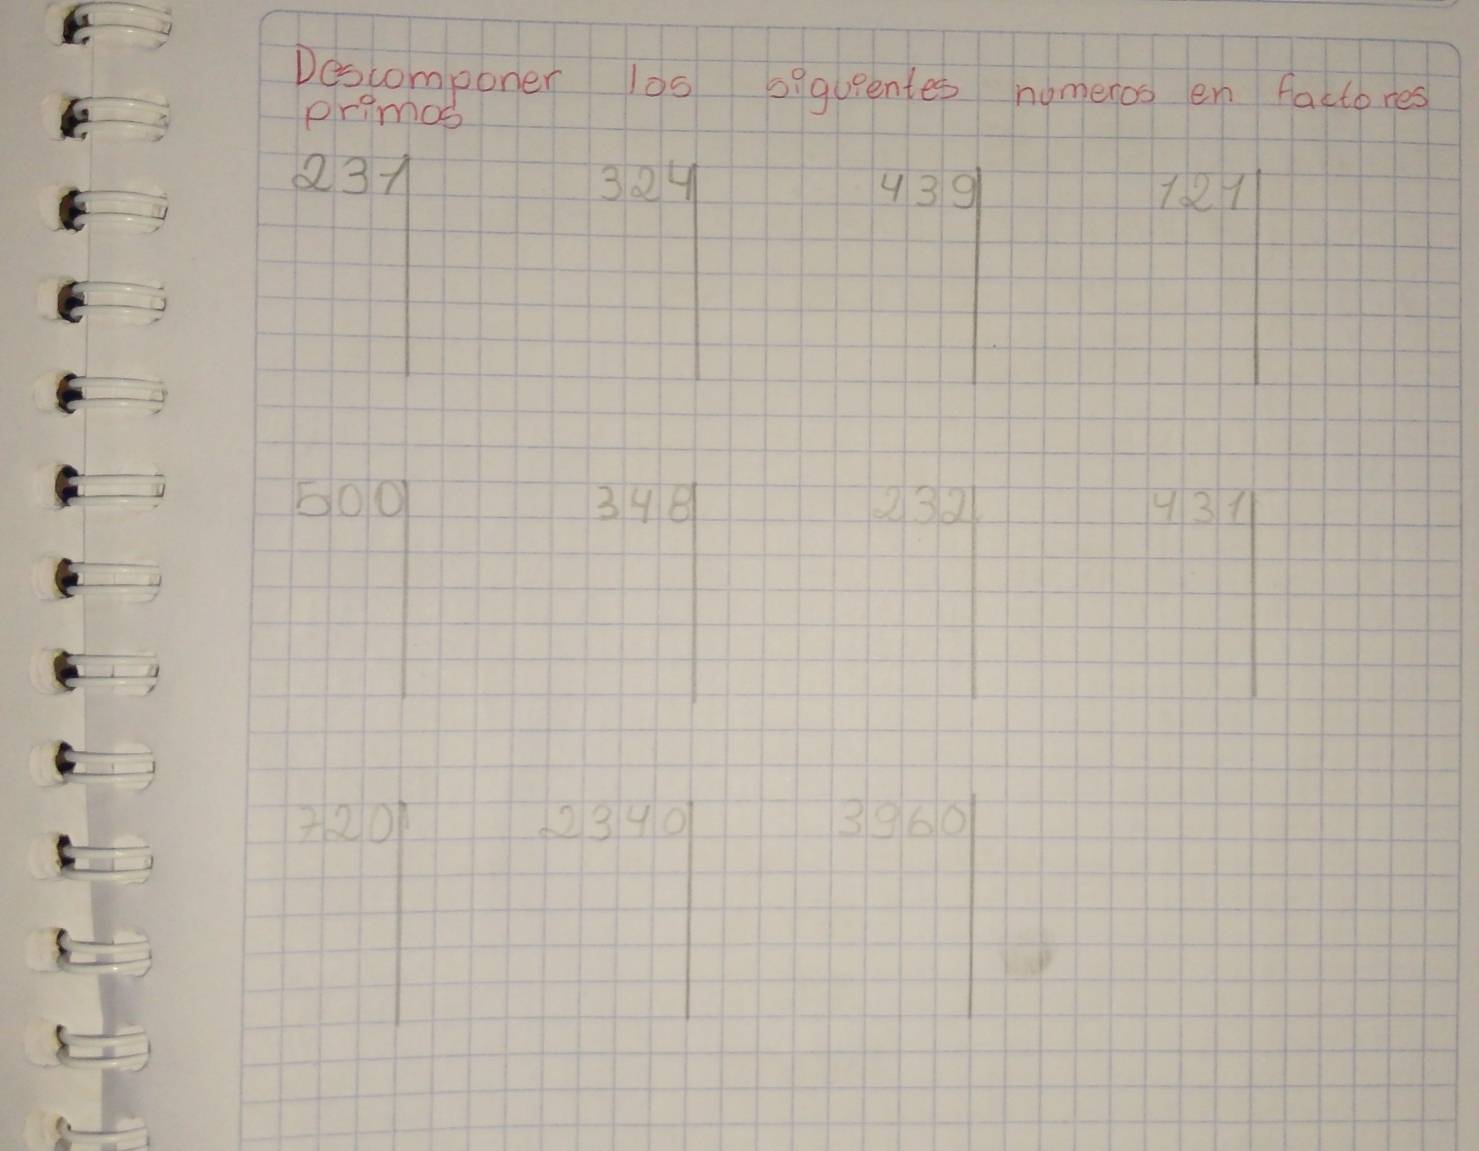 Descomponer los siguientes numeros en factores
primos
231 324 439 121
500 348 232 431
720 2340 3960